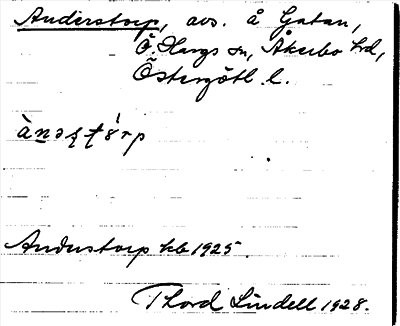 Anderstorp, avs. å Gatan,
Ö. Hargs sn, Åkerbo hd,
Östergötl. l.
Anderstorp kb 1925.
Thord Lindell 1928.